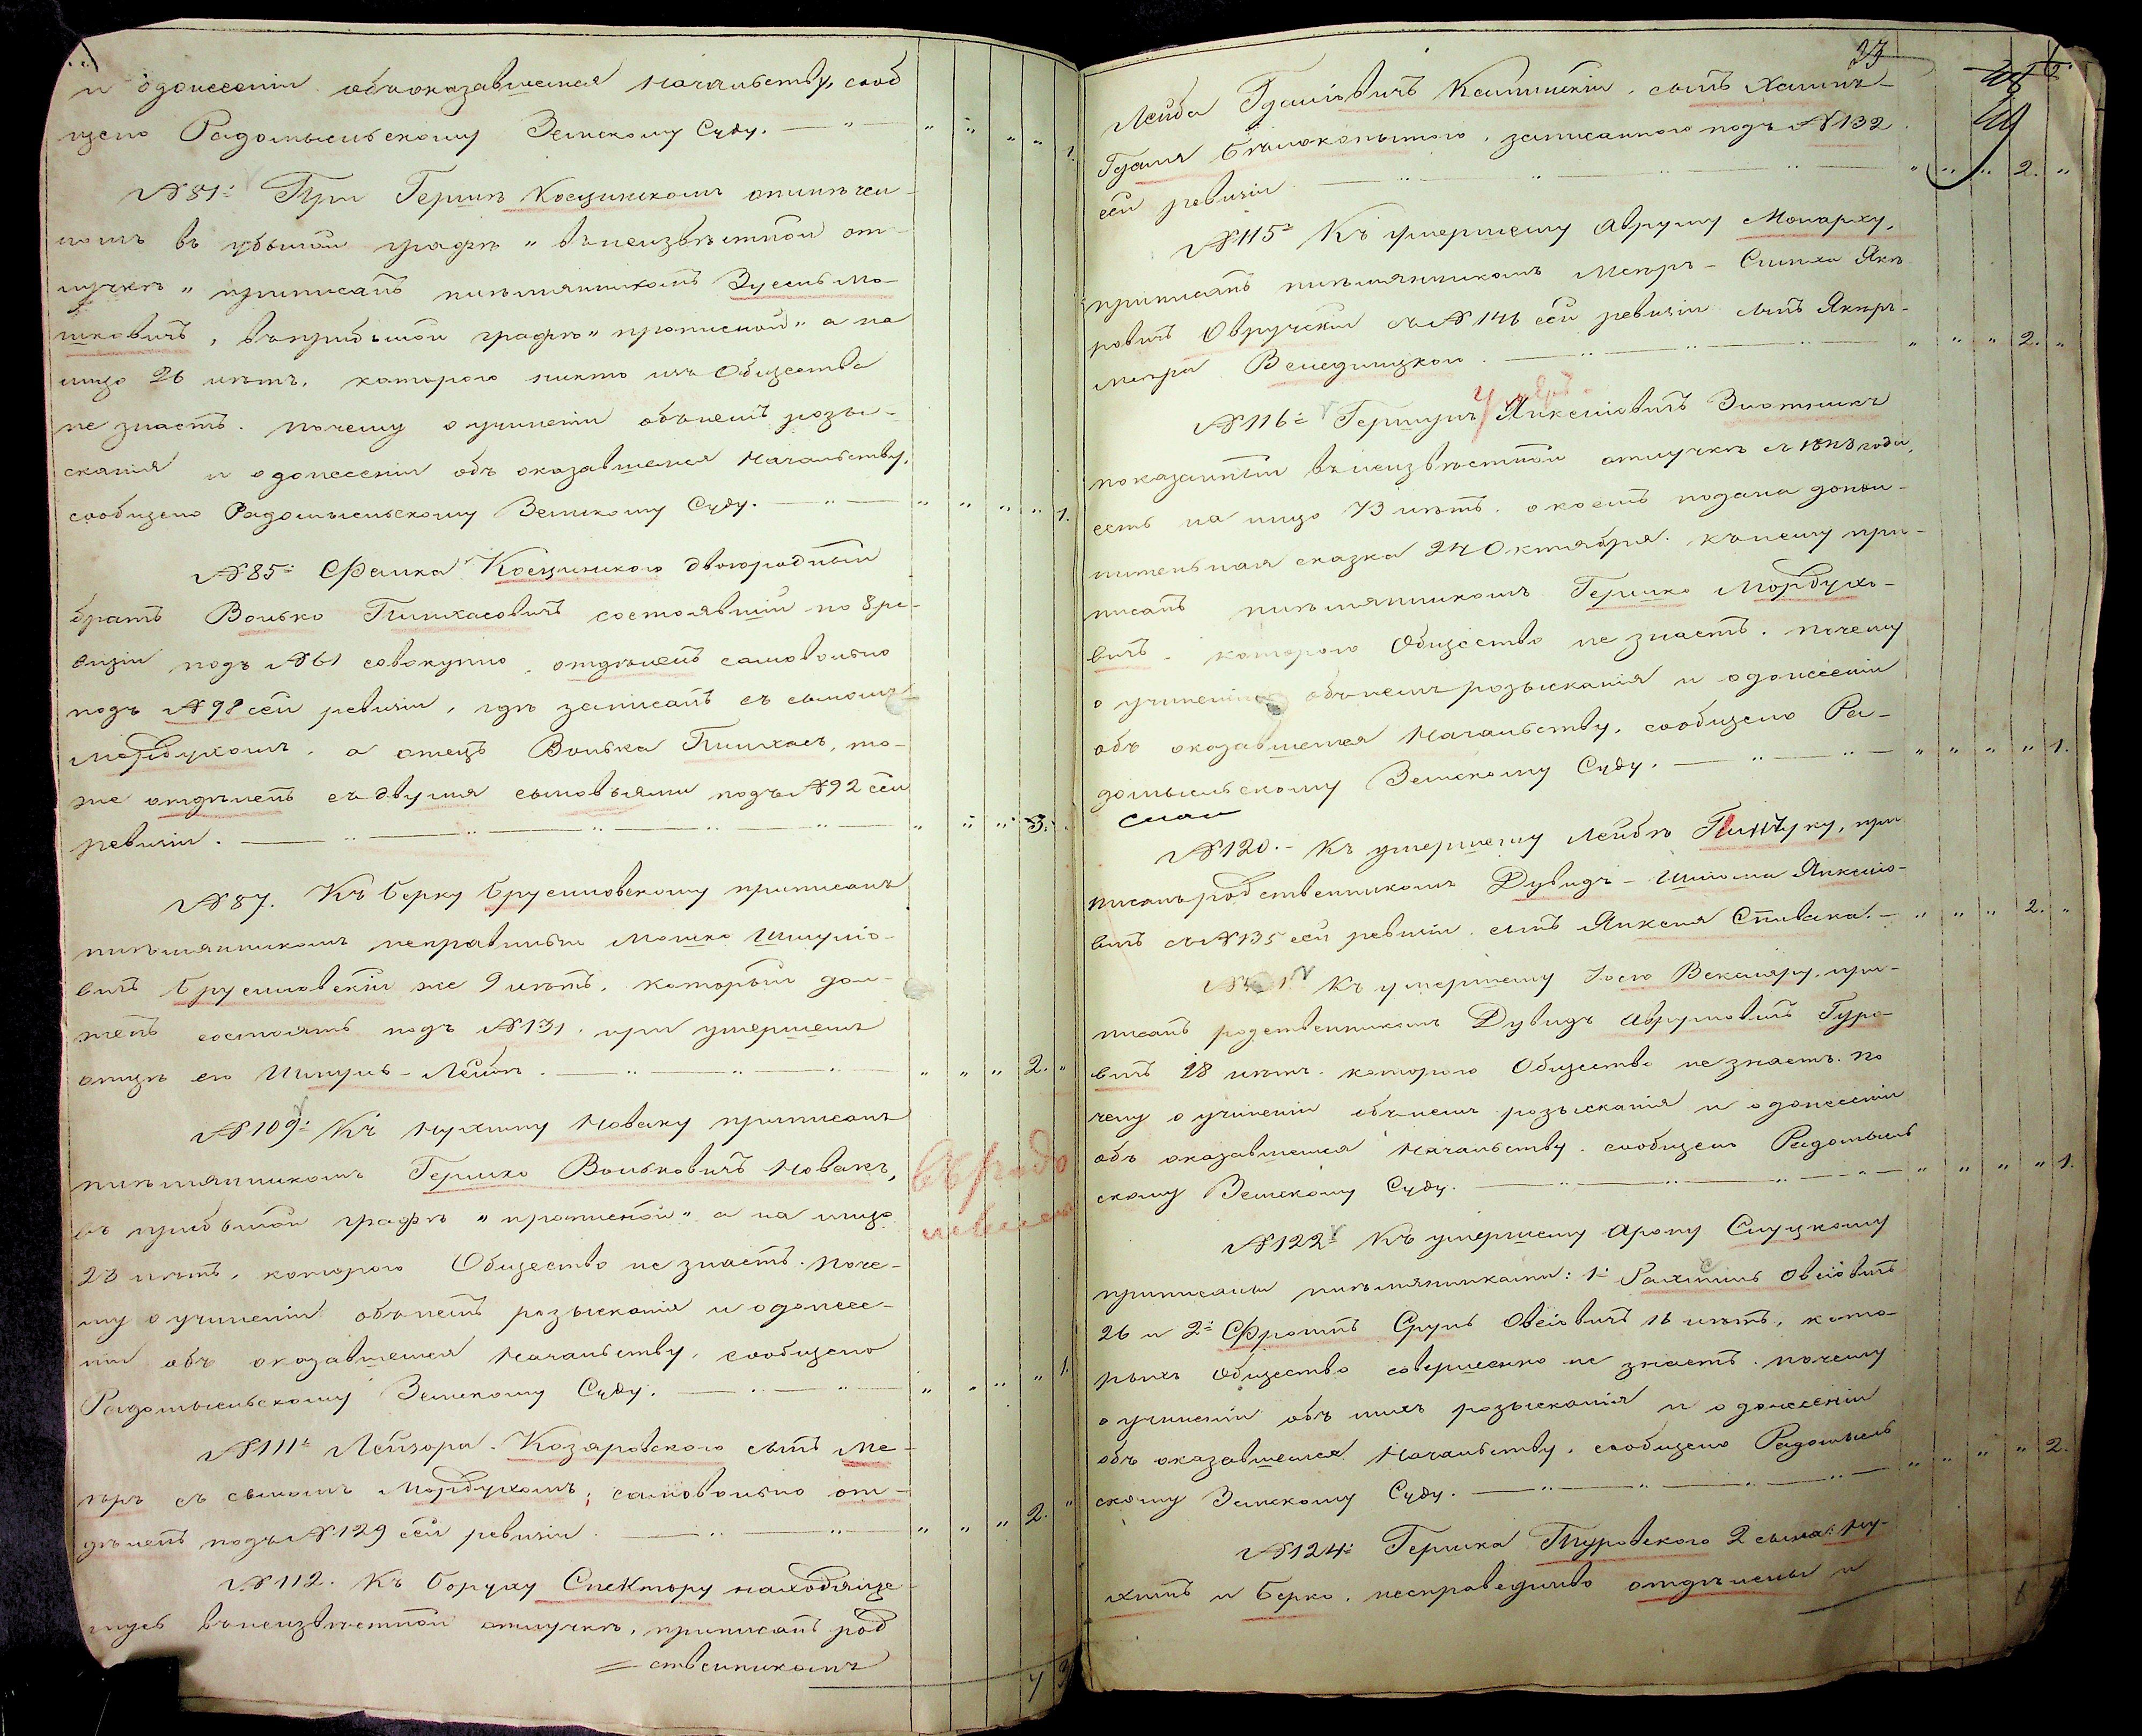 и о донесеніи объ оказавшемся Начальству, сооб
щено Радомысльскому Земскому Суду. — " — " " " " 1.
№ 81: При Гершкѣ Косцинскомъ отмѣчен-
номъ въ убылой графѣ "въ неизвѣстной от-
лучкѣ" приписанъ племянникомъ Зусель Мо-
шковичъ, въ прибылой графѣ "прописной" а на
лицо 26 лѣтъ, котораго никто изъ Общества
не знаетъ. почему о учиненіи объ немъ розы-
сканія и о донесеніи объ оказавшемся Начальству,
сообщено Радомысльскому Земскому Суду. — " — " " " " 1.
№ 85: Фалика Косцинского двоюродный
братъ Волько Пинхасовичъ состоявшій по 8 ре-
визіи подъ № 61 совокупно, отдѣленъ самовольно
подъ № 98 сей ревизіи, гдѣ записанъ съ сыномъ
Мордухомъ, а отецъ Волька Пинхасъ, то-
же отдѣленъ съ двумя сыновьями подъ № 92 сей
ревизіи. — " — " — " — " — " " " 3. "
№ 87. Къ Берку Брусиловскому приписанъ
племянникомъ неправильно Мошко Шмуліо-
вичъ Брусиловскій же 9 лѣтъ, который дол-
женъ состоять подъ № 131. при умершемъ
отцѣ его Шмуль-Лейбѣ. — " — " — " " " " 2. "
№ 109: Къ Нухиму Новаку приписанъ
племянникомъ Гершко Вольковичъ Новакъ,
въ прибылой графѣ "прописной" а на лицо
23 лѣтъ, котораго Общество не знаетъ. поче-
му о учиненіи объ немъ розысканія и о донесе-
ніи объ оказавшемся Начальству, сообщено
Радомысльскому Земскому Суду. — " — " — " " " " 1.
№ 111: Лейзора Козаровского сынъ Ме-
еръ съ сыномъ Мордухомъ, самовольно от-
дѣленъ подъ № 129 сей ревизіи. — " — " — " " " 2. "
№ 112. Къ Боруху Спектору находяще-
муся въ неизвѣстной отлучкѣ, приписанъ род
= ственникомъ
Лейба сынъ Хаимъ-
записанного подъ № 132
сей ревизіи. — " — " — " " " " 2. "
№ 115: Къ умершему Авруму Монарху,
приписанъ племянникомъ Мееръ-Симха Янк
ровичъ Овручскій съ № 146 сей ревизіи сынъ
Меера — " — " — " " " " 2. "
№ 116: Гершунъ Янкеліовичъ Злотникъ
показанный въ неизвѣстной отлучкѣ съ года,
есть на лицо 73 лѣтъ. о коемъ подана допол-
нительная сказка 24 Октября. къ нему при-
писанъ племянникомъ Гершко Мордухо-
вичъ, котораго Общество не знаетъ. почему
о учиненіи объ немъ розысканія и о донесеніи
объ оказавшемся Начальству, сообщено Ра-
домысльскому Земскому Суду. — " — " — " " " " 1.
№ 120. - Къ умершему Лейбѣ Пинчуку, при
писанъ родственникомъ Дувидъ-Шлома Янкеліо-
вичъ съ № 135 сей ревизіи, сынъ Янкеля Спивака. - " " " 2. "
Къ умершему Іосю Векслеру, при-
писанъ родственникомъ Дувидъ Аврумовичъ Гуро-
вичъ 18 лѣтъ. котораго Общество не знаетъ. по
чему о учиненіи объ немъ розысканія и о донесеніи
объ оказавшемся Начальству. сообщено Радомысль
скому Земскому Суду. — " — " — " " " " 1.
№ 122: Къ умершему Арону Слуцкому
приписаны племянниками: 1: Рахмиль Овсіовичъ
26 и 2: Фроимъ Сруль Овсіовичъ 16 лѣтъ, кото-
рыхъ Общество совершенно не знаетъ. почему
о учиненіи объ нихъ розысканія и о донесеніи
объ оказавшемся Начальству, сообщено Радомысль
скому Земскому Суду. — " — " — " " " " 2.
№ 124: Гершка Туровского 2 сына: Ну-
химъ и Берко, несправедливо отдѣлены и